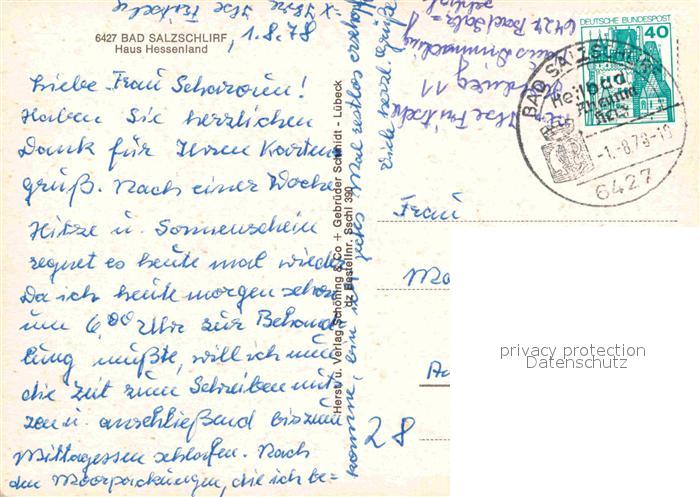 6427 BAD SALZSCHLIRF
Haus Hessenland
1.8.78
Liebe Frau Scharoun!
Haben Sie herzlichen
Dank für Ihren Karten-
gruß. Nach einer Woche
Hitze u. Sonnenschein
regnet es heute mal wieder.
Da ich heute morgen schon
um 6,00 Uhr zur Behand-
lung mußte, will ich nun
die Zeit zum Schreiben nüt-
zen u. anschließend bis zum
Mittagessen schlafen. Nach
den Moorpackungen, die ich be-
komme, bin ich jedes Mal restlos
Viele herzl. Grüße
Ihre Ilse Fritsche
Herst. u. Verlag Schöning & Co + Gebrüder Schmidt - Lübeck
dz Bestellnr. Sschl 390
Ilse Fritsche
11
6427 Bad Salz-
schlirf
DEUTSCHE BUNDESPOST
40
BAD SALZSCHLIRF
Heilbad
-1.-8.78-10
6427
Frau
28
privacy protection
Datenschutz